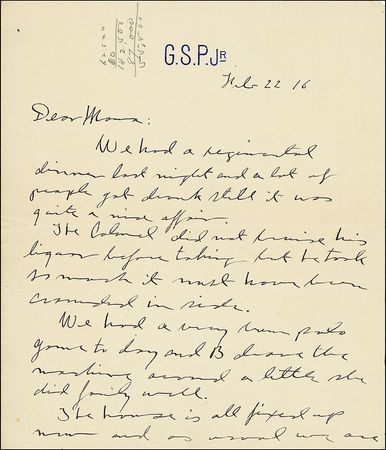 G.S.P. Jr
Feb 22 16
Dear Mama:
We had a regimental
dinner last night and a lot of
people got drunk still it was
quite a nice affair.
The Colonel did not bruise his
liquor before taking but he took
so much it must have been
crowded in side.
We had a very polo
game to day and B drove the
machine around a little she
did fairly well.
The house is all fixed up
now and as usual we are